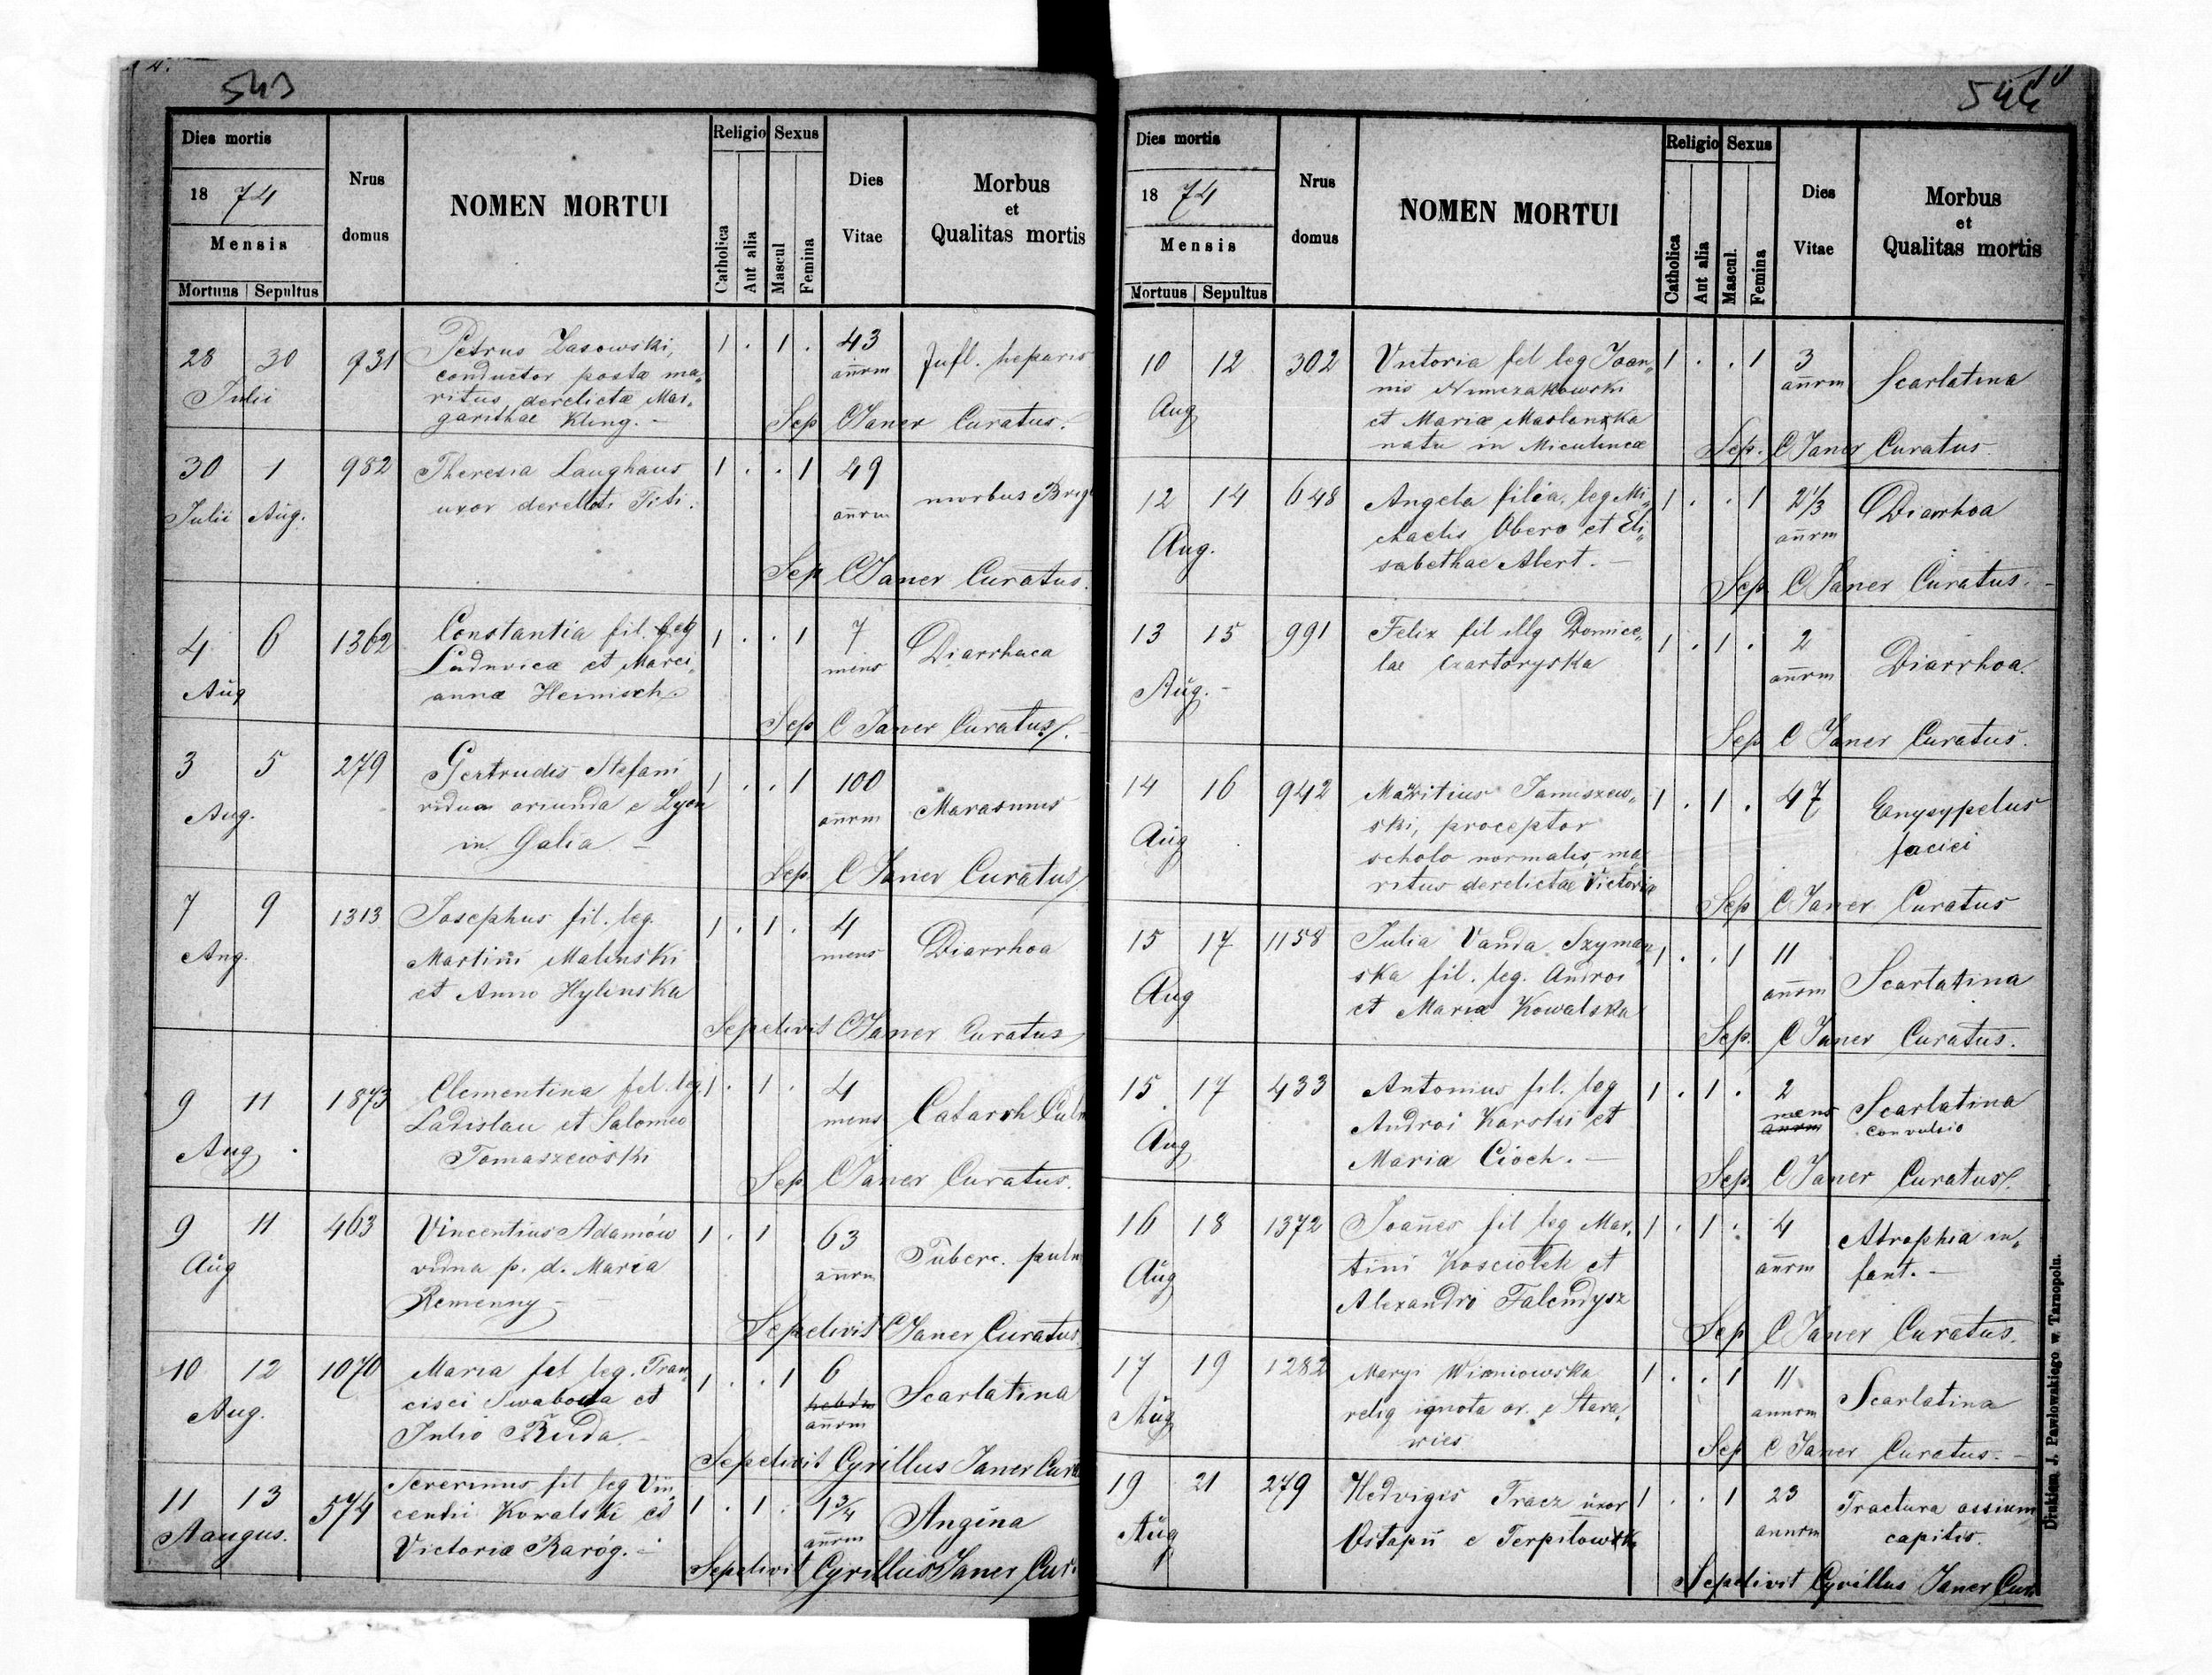 543
Dies mortis
18 74
Mensis
Mortuus Sepultus
Nrus domus
NOMEN MORTUI
Religio Sexus
Catholica
Aut alia
Mascul
Femina
Dies Vitae
Morbus
et
Qualitas mortis
28 30 931 Petrus Lasowski, 1 . 1 . 43 Jufl. heparis
Julii conductor postæ ma„ annrm
ritus derelictæ Mar„
garithae Kling. – Sep CJaner Curatus.
30 1 982 Theresia Langhaus 1 . . 1 49 morbus Brig
Julii Aug. uxor derelict. Titi. annrm
Sep CJaner Curatus.
4 6 1362 Constantia fil. leg 1 . . 1 7 Diarrhaea
Aug Ludovicæ et Marci„ mens
annæ Hemisch.
Sep C Janer Curatus.
3 5 279 Gertrudis Stefani 1 . . 1 100 Marasmus
Aug. vidua oriunda e Lyon annrm
in Galia –
Sep. C Janer Curatus
7 9 1313 Josephus fil. leg. 1 . 1 . 4 Diarrhoa
Aug. Martini Malinski mens
et Anna Hylinska
Sepelivit CJaner Curatus
9 11 1873 Clementina fil. leg. 1 . 1 . 4 Catarrh Pulm
Aug. Ladislau et Salomea mens
Tomaszewski
Sep CJaner Curatus.
9 11 463 Vincentius Adamów 1 . 1 63 Tuberc. pulm
Aug vidua p. d. Maria annrm
Remenny –
Sepelivit CJaner Curatus
10 12 1070 Maria fil leg. Fran„ 1 . . 1 6 Scarlatina
Aug. cisci Swaboda et annrm
Julio Ruda. –
Sepelivit Cyrillus Janer Cura
11 13 574 Severinus fil leg Vin„ 1 . 1 . 1 3/4 Angina
Aaugus. centii Kowalski et annrm
Victoria Raróg. –
Sepelivit Cyrillus Janer Cur
544
Dies mortis
18 74
Mensis
Mortuus Sepultus
Nrus domus
NOMEN MORTUI
Religio Sexus
Catholica
Aut alia
Mascul.
Femina
Dies Vitae
Morbus
et
Qualitas mortis
10 12 302 Victoria fil leg Joan„ 1 . . 1 3 Scarlatina
Aug nis Nimczakowski annrm
et Mariæ Maslanska
nata in Miculincæ Sep. C Janer Curatus.
12 14 648 Angela filia. leg Mi„ 1 . . 1 2 1/3 Diarrhoa
Aug. chaelis Obero et Eli„ annrm
sabethae Abert. –
Sep C Janer Curatus. –
13 15 991 Felix fil illg Domice„ 1 . 1 . 2 Diarrhoa.
Aug. – lae Czartoryska annrm
Sep C Janer Curatus.
14 16 942 Mauritius Janiszew„ 1 . 1 . 47 Erysypelus
Aug ski, proceptor faciei
scholo normalis, ma„
ritus derelictae Victoria
Sep CJaner Curatus
15 17 1158 Julia Vanda Szyman„ 1 . . 1 11 Scarlatina
Aug ska fil. leg. Androi annrm
et Maria Kowalska
Sep. C Janer Curatus.
15 17 433 Antonius fil. leg 1 . 1 . 2 Scarlatina
Aug Androi Karski et mens convulsio
Maria Cioch. – annrm
Sep. C Janer Curatus.
16 18 1372 Joannes fil leg Mar„ 1 . 1 . 4 Atrophia in„
Aug tini Kosciołek et annrm fant. –
Alexandro Falendysz
Sep C Janer Curatus.
17 19 1282 Marys Wisniowska 1 . . 1 11 Scarlatina
Aug relig ignota or. e Stara„ annrm
wies
Sep C Janer Curatus. –
19 21 279 Hedvigis Tracz uxor 1 . . 1 23 Fractura ossium
Aug Ostapii e annrm capitis.
Sepelivit Cyrillus Janer Cura
Drukiem J. Pawłowskiego w Tarnopolu.